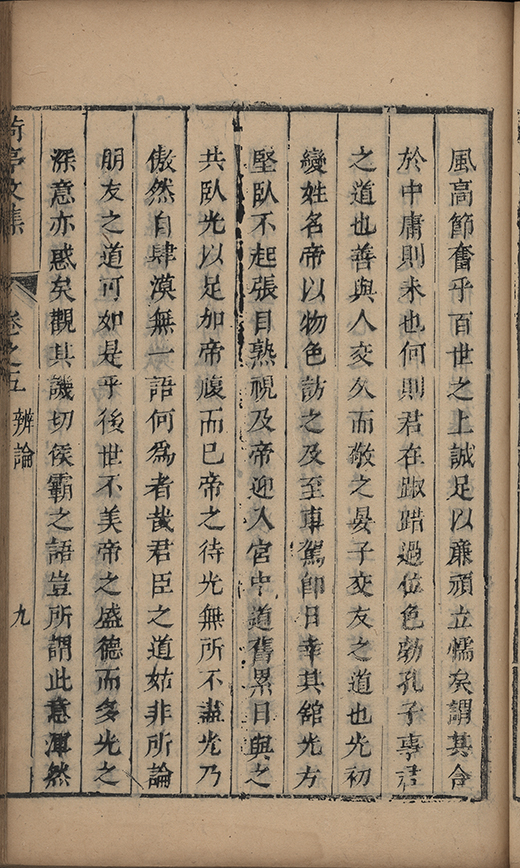 風高節奮乎百世之上誠足以廉頑立懦矣謂其合
於中庸則未也何則君在踧踖過位色勃孔子事君
之道也善與人交久而敬之晏子交友之道也光初
變姓名帝以物色訪之及至車駕卽日幸其舘光方
堅臥不起張目熟視及帝迎入宮中道舊累日與之
共臥光以足加帝腹而已帝之待光無所不盡光乃
傲然自肆漠無一語何為者哉君臣之道姑非所論
朋友之道可如是乎後世不美帝之盛德而多光之
深意亦惑矣觀其譏切侯霸之語豈所謂此意渾然
亭文集
卷之五
辨論
九